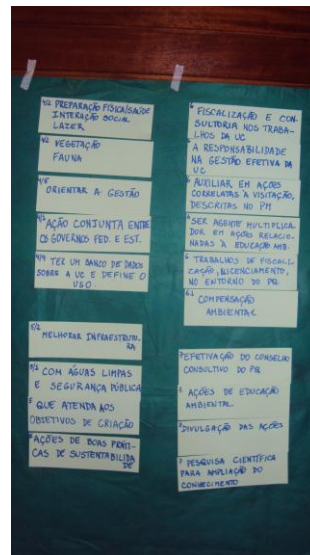 4/2 PREPARAÇÃO FÍSICA/SAÚDE
INTERAÇÃO SOCIAL
LAZER
4/2 VEGETAÇÃO
FAUNA
ORIENTAR A GESTÃO
AÇÃO CONJUNTA ENTRE
OS GOVERNOS FED. E EST.
TER UM BANCO DE DADOS
SOBRE A UC E DEFINE O
USO
MELHORAR INFRAESTRUTU-
RA
COM ÁGUAS LIMPAS
E SEGURANÇA PÚBLICA
QUE ATENDA AOS
OBJETIVOS DE CRIAÇÃO
AÇÕES DE BOAS PRÁTI-
CAS DE SUSTENTABILIDA
DE
FISCALIZAÇÃO E CON-
SULTORIA NOS TRABA-
LHOS DA UC
A RESPONSABILIDADE
NA GESTÃO EFETIVA DA
UC
AUXILIAR EM AÇÕES
CORRELATAS À VISITAÇÃO,
DESCRITAS NO PM
SER AGENTE MULTIPLICA
DOR EM AÇÕES RELACIO-
NADAS À EDUCAÇÃO AMB.
TRABALHOS DE FISCALI-
ZAÇÃO, LICENCIAMENTO,
NO ENTORNO DO PQ.
6.1 COMPENSAÇÃO
AMBIENTAL
EFETIVAÇÃO DO CONSELHO
CONSULTIVO DO PQ
AÇÕES DE EDUCAÇÃO
AMBIENTAL
DIVULGAÇÃO DAS AÇÕES
7 PESQUISA CIENTÍFICA
PARA AMPLIAÇÃO DO
CONHECIMENTO